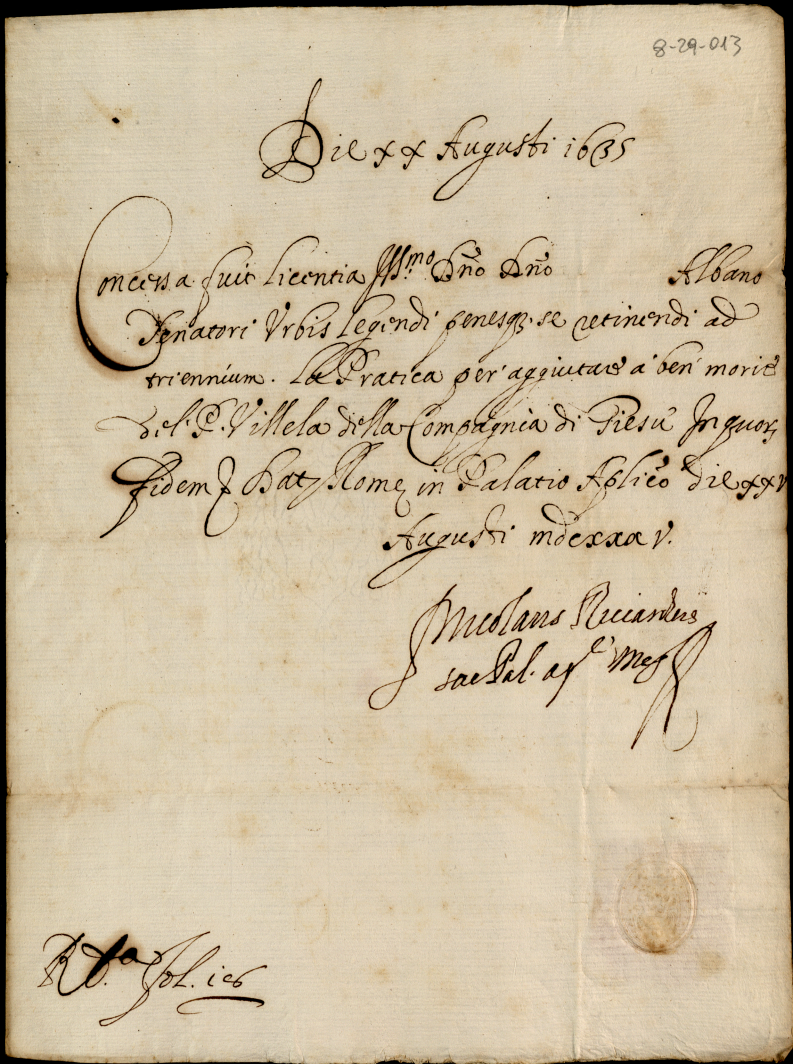 8-29-013
Die xx Augusti 1635
Concessa fuit licentia Ill.mo Dño Dño Albano
Senatori Vrbis legendi penesq; se retinendi ad
triennium. La Pratica per aggiutare à ben morire
del P. Villela della Compagnia di Giesù Inquor
fidem Dat Rome in Palatio Aplico die xxv
Augusti mdcxxxv.
Nicolaus Riccardius
sac Pal. ap Mag
R fol. 106